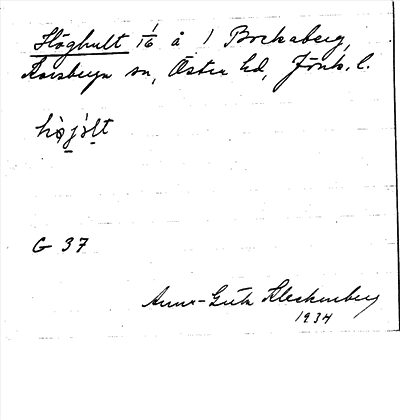 Höghult 1/16 å 1 Bockaberg,
Korsberga sn, Östra hd, Jönk. l.
höjölt
G 37
Anna-Greta Kleckenberg
1934